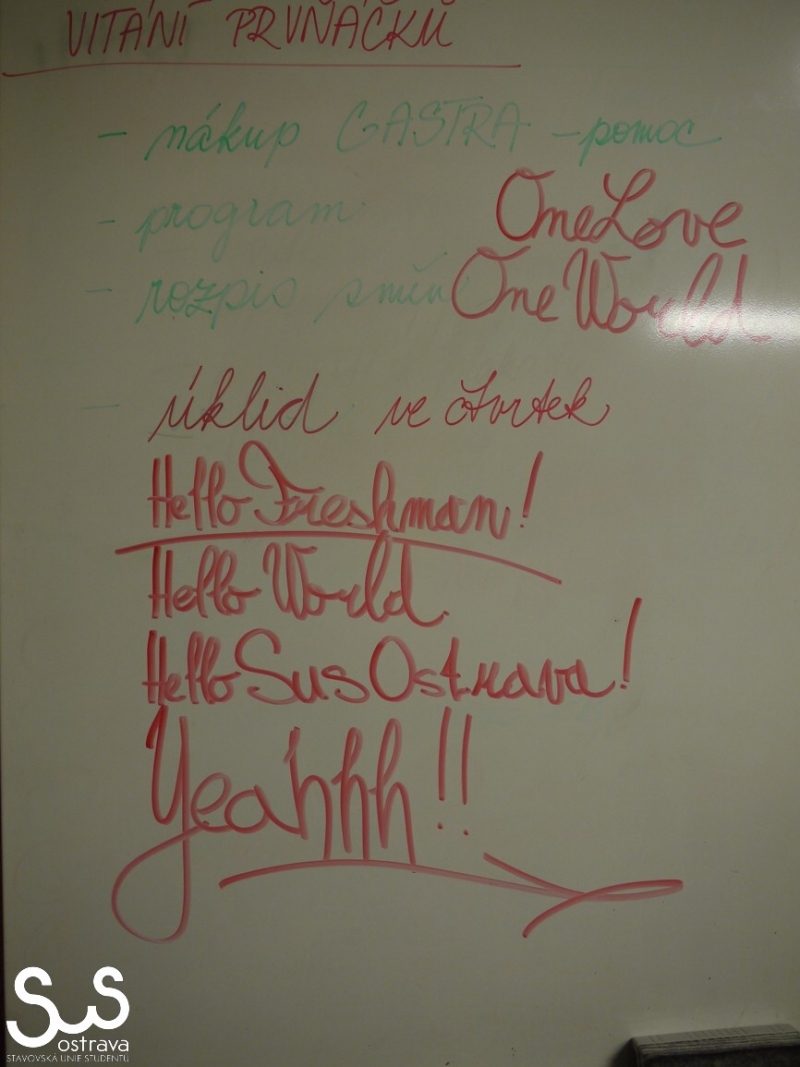 VITÁNÍ PRVŇÁČKŮ
- nákup GASTRA - pomoc
- program
OneLove
- rozpis směn
One World
- úklid ve čtvrtek
Hello Freshman!
Hello World.
Hello Sus Ostrava!
Yeahhh!!
SUS
ostrava
STAVOVSKÁ UNIE STUDENTŮ